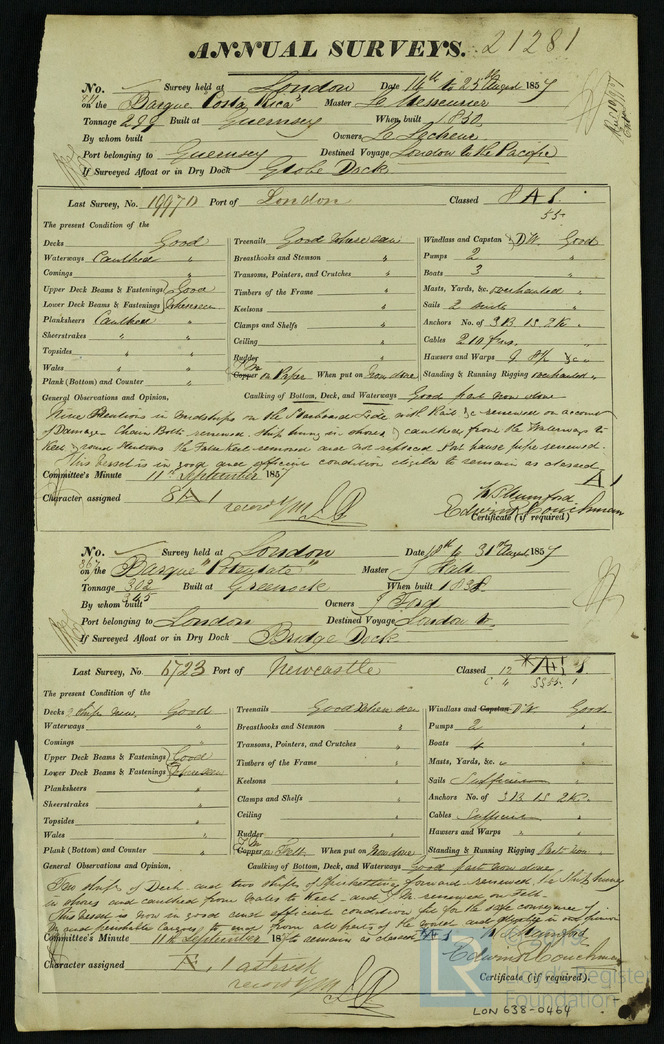 ANNUAL SURVEYS. 21281
No. Survey held at London Date 14th to 25th August 1857
on the Barque "Costa Rica" Master Le Messurier
Tonnage 299 Built at Guernsey When built 1850
By whom built Owners Le Lacheur
Port belonging to Guernsey Destined Voyage London to the Pacific
If Surveyed Afloat or in Dry Dock Globe Dock
Last Survey, No. 19970 Port of London Classed 8 A 1
55
The present Condition of the
Decks Good Treenails Good where seen Windlass and Capstan D.W. Good
Waterways Caulked " Breasthooks and Stemson " Pumps 2 "
Comings " Transoms, Pointers, and Crutches " Boats 3 "
Upper Deck Beams & Fastenings Good Timbers of the Frame " Masts, Yards, &c. overhauled "
Lower Deck Beams & Fastenings where seen Keelsons " Sails 2 suits "
Planksheers Caulked Clamps and Shelfs " Anchors No. of 3B 1S 2K "
Sheerstrakes " " Ceiling " Cables 210 fms. "
Topsides " " Rudder " Hawsers and Warps 9 &c "
Wales " " Copper YM on Paper When put on Now done Standing & Running Rigging overhauled "
Plank (Bottom) and Counter " Caulking of Bottom, Deck, and Waterways Good part now done
General Observations and Opinion,
Nine Stantions in midships on the Starboard side with Rail &c renewed on account
of Damage. Chain Bolts renewed. Ship hung in shores & caulked from the Waterways to
Keel & round Stantions the False Keel removed and not replaced Port hause pipe renewed.
This Vessel is in good and efficient condition eligible to remain as classed A 1
Committee's Minute 11th September 1857
Character assigned 8 A 1
record YM
W. Mumford
Edwin Couchman
Certificate (if required)
No. Survey held at London Date 18th to 31st August 1857
on the Barque "Potentate" Master J Hall
Tonnage 302 Built at Greenock When built 1838
345
By whom built Owners J Ford
Port belonging to London Destined Voyage London to
If Surveyed Afloat or in Dry Dock Bridge Dock
Last Survey, No. 6723 Port of Newcastle Classed 12 *A 1
The present Condition of the
Decks 2 strips new, Good Treenails Good where seen Windlass and Capstan D.W. Good
Waterways " Breasthooks and Stemson " Pumps 2 "
Comings " Transoms, Pointers, and Crutches " Boats 4 "
Upper Deck Beams & Fastenings Good Timbers of the Frame " Masts, Yards, &c. "
Lower Deck Beams & Fastenings where seen Keelsons " Sails Sufficient
Planksheers " Clamps and Shelfs " Anchors No. of 3B 1S 2K.
Sheerstrakes " Ceiling " Cables Sufficient "
Topsides " Rudder " Hawsers and Warps " "
Wales " Copper YM on Felt When put on Now done Standing & Running Rigging Part new "
Plank (Bottom) and Counter " Caulking of Bottom, Deck, and Waterways Good part now done
General Observations and Opinion,
Two strips of Deck and two strips of Spirketting forward renewed, the Ship hung
in shores and caulked from Wales to Keel and YM renewed on Felt.
This Vessel is now in good and efficient condition fit for the safe conveyance of
dry and perishable Cargoes to and from all parts of the World and eligible in our opinion
to remain as classed *A 1
Committee's Minute 11th September 18
Character assigned A. 1 asterisk
record YM
W. Mumford
Edwin Couchman
Certificate (if required).
LR Lloyd's Register Foundation
LON 638-0464